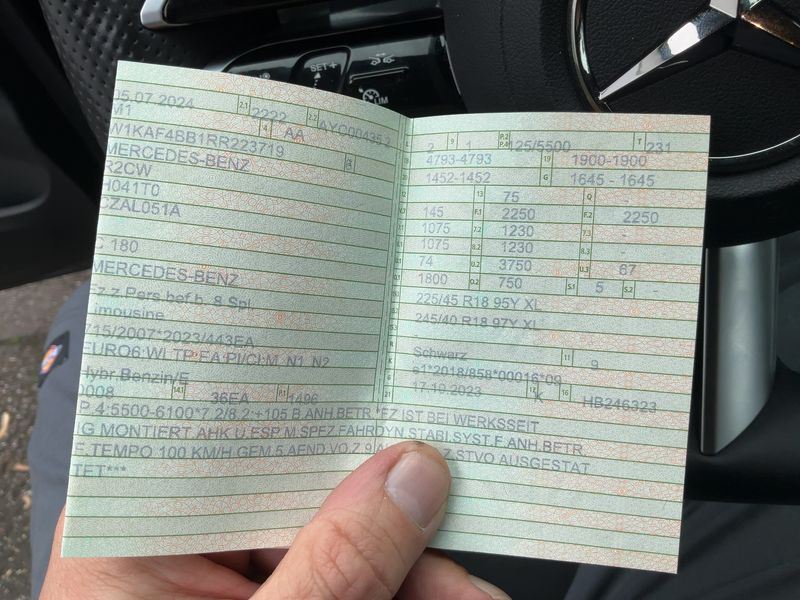 SET+
LIM
05.07.2024 2.1 2222 2.2 AYC00435 2
M1 4 AA
W1KAF4BB1RR223719 3
MERCEDES-BENZ
R2CW
H041T0
CZAL051A
C 180
MERCEDES-BENZ
Fz.z.Pers.bef.b. 8 Spl.
Limousine
715/2007*2023/443EA
EURO6;WLTP;EA;PI/CI;M, N1, N2
Hybr.Benzin/E
0008 14.1 36EA P.1 1496
2 9 1 P.2 P.4 125/5500 T 231
4793-4793 19 1900-1900
1452-1452 G 1645 - 1645
13 75 Q -
145 F.1 2250 F.2 2250
1075 7.2 1230 7.3 -
1075 8.2 1230 8.3 -
74 U.2 3750 U.3 67
1800 O.2 750 S.1 5 S.2 -
225/45 R18 95Y XL
245/40 R18 97Y XL
Schwarz 11 9
e1*2018/858*00016*09
17.10.2023 K 16 HB246323
P.4:5500-6100*7.2/8.2:+105 B.ANH.BETR.*FZ IST BEI WERKSSEIT
IG MONTIERT.AHK U.ESP M.SPEZ.FAHRDYN.STABI.SYST.F.ANH.BETR.
F.TEMPO 100 KM/H GEM.5.AEND.VO.Z.9.A STVO AUSGESTAT
TET***